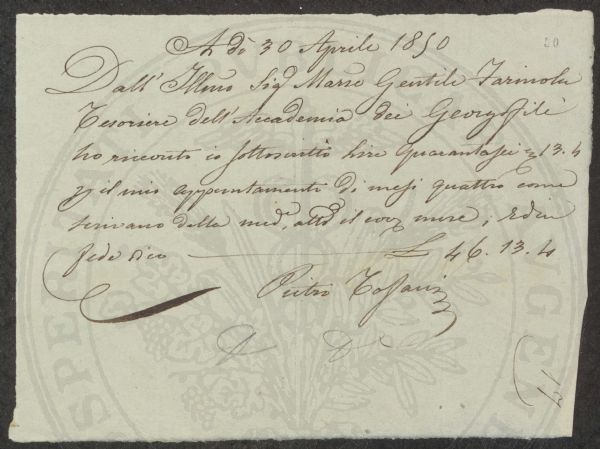 A dì 30 Aprile 1850
20
Dall' Illmo Sigr Marse Gentile Farinola
Tesoriere dell'Accademia dei Georgofili
ho ricevuto io sottoscritto Lire Quarantasei e 13. 4
il mio appuntamento di mesi quattro come
scrivano della med., il corr mese; ed in
fede dico £ 46. 13. 4
Pietro
17